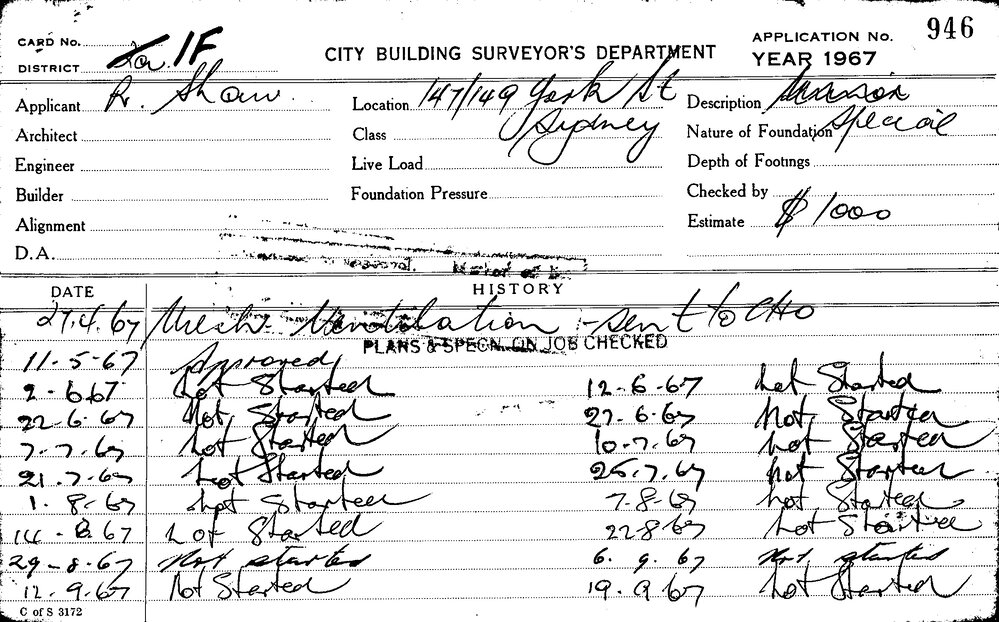 946
CARD No. 1F
CITY BUILDING SURVEYOR'S DEPARTMENT
APPLICATION No.
DISTRICT
YEAR 1967
Applicant R. Shaw Location 147/149 York St Description
Architect Class Sydney Nature of Foundation Special
Engineer Live Load Depth of Footings
Builder Foundation Pressure Checked by
Alignment Estimate $ 1000
D.A.
DATE HISTORY
27.4.67 Mech Ventilation - sent to CHO
PLANS & SPECN. ON JOB CHECKED
11.5.67 Approved
2.6.67 Not Started 12.6.67 Not Started
22.6.67 Not Started 27.6.67 Not Started
7.7.67 Not Started 10.7.67 Not Started
21.7.67 Not Started 26.7.67 Not Started
1.8.67 Not Started 7.8.67 Not Started
14.8.67 Not Started 22.8.67 Not Started
29.8.67 Not started 6.9.67 Not started
12.9.67 Not Started 19.9.67 Not Started
C of S 3172